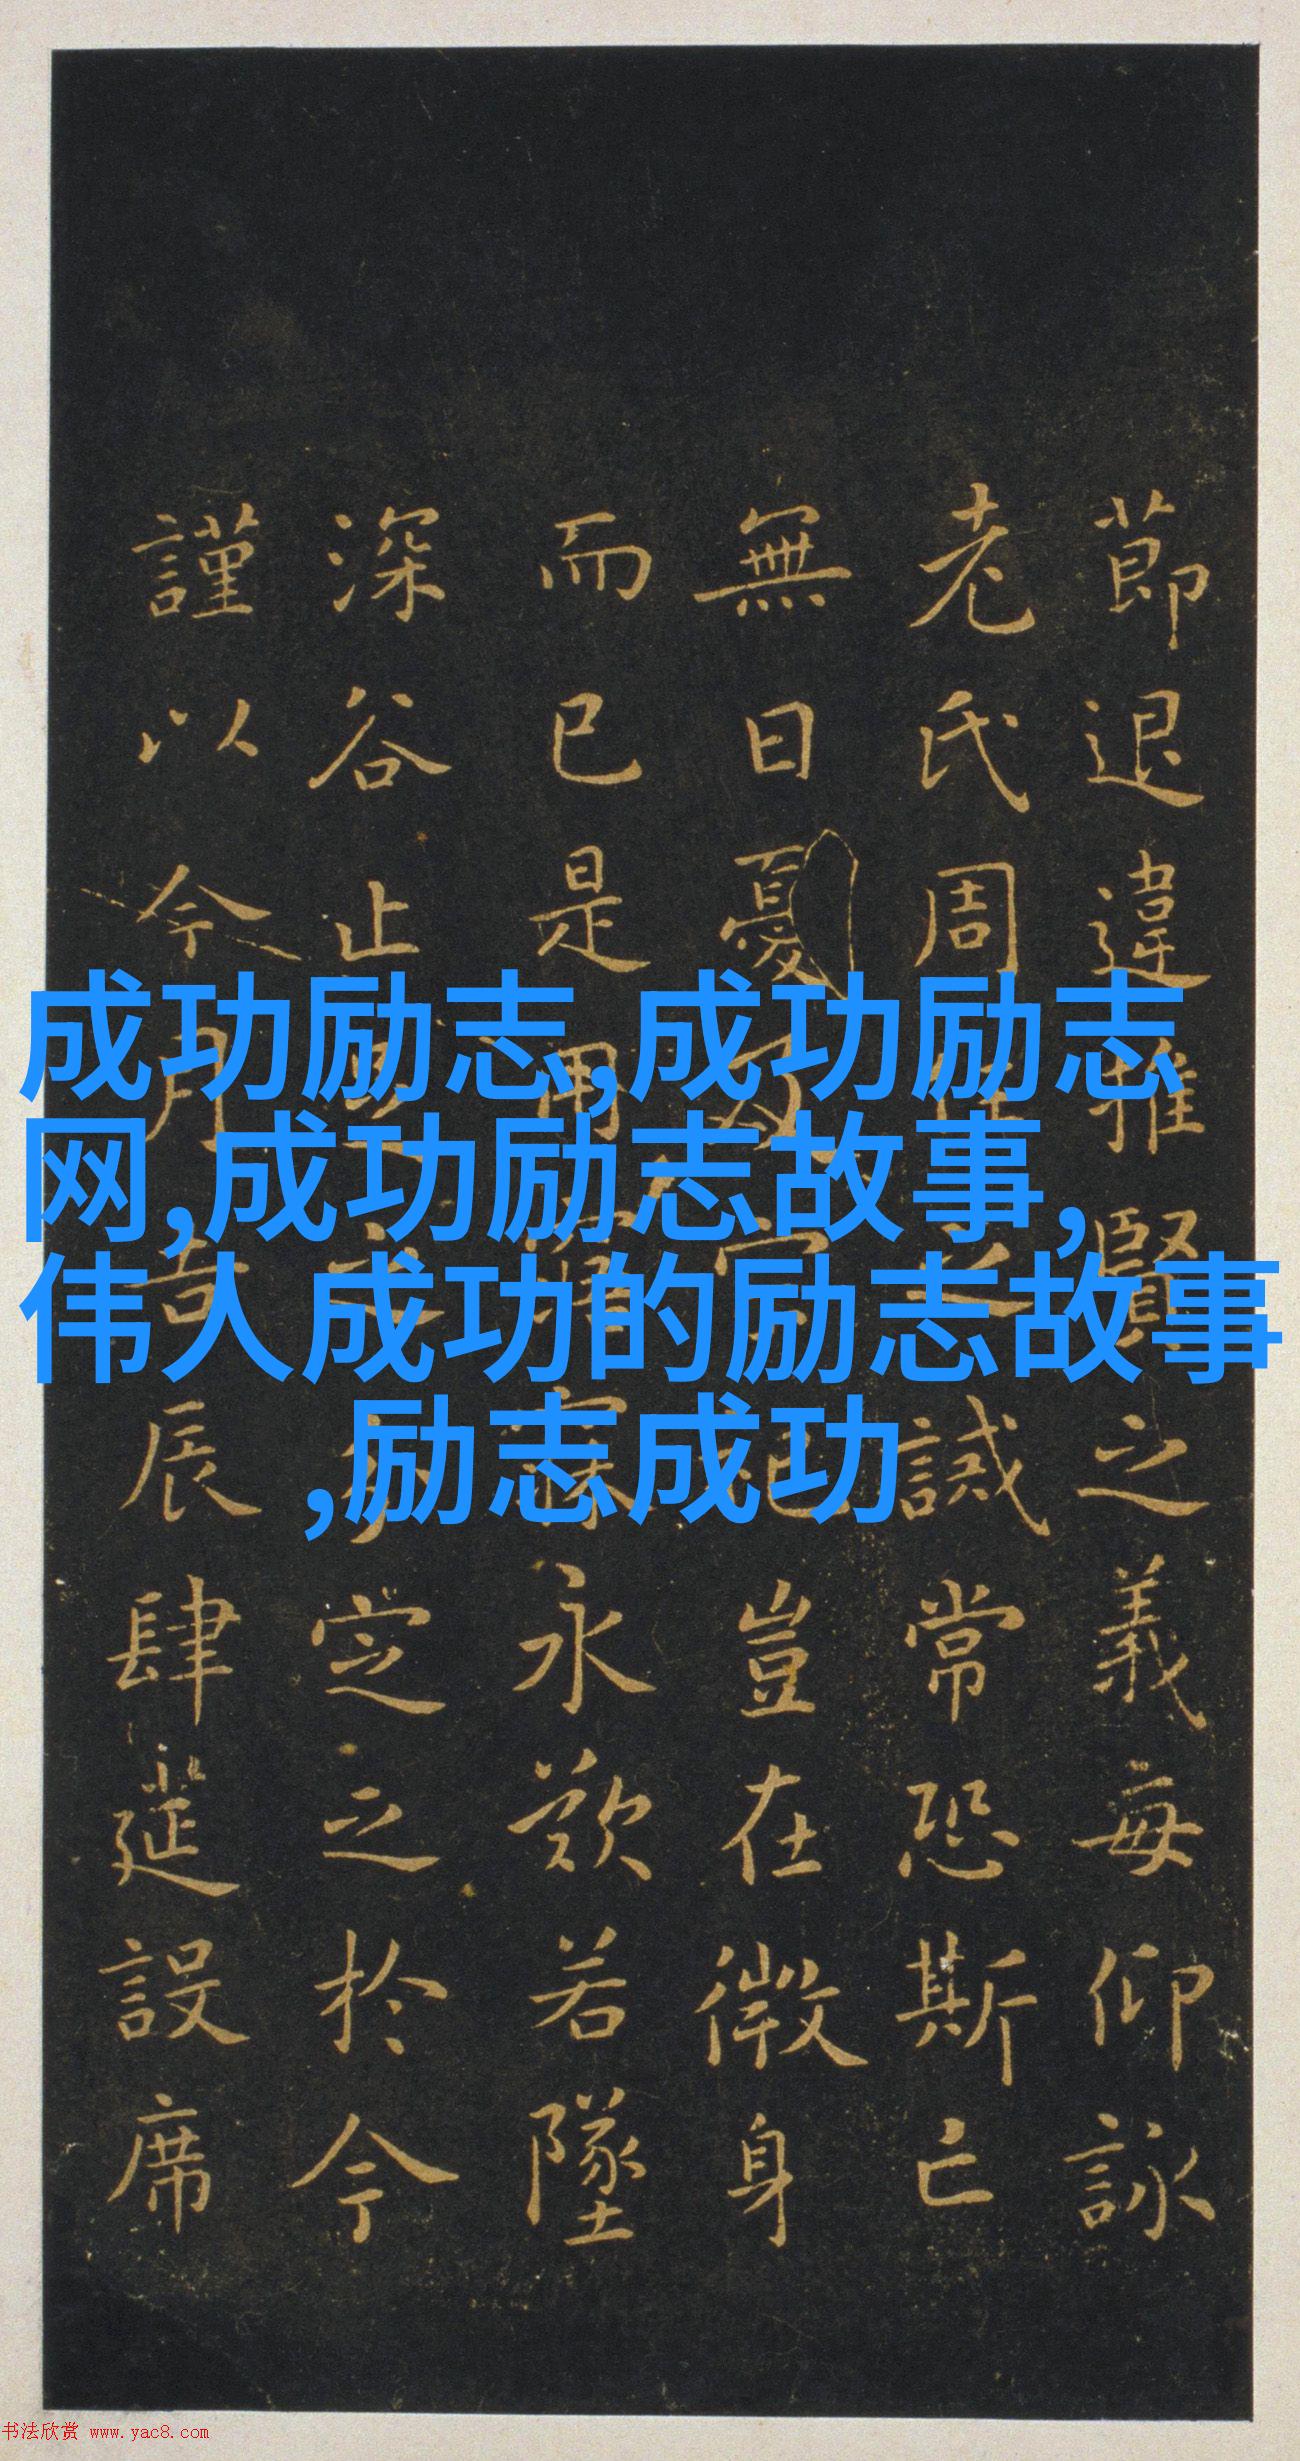 節退違推賢之義每仰詠
老氏周任之誡常恐斯亡
無日憂及宗祀豈在微身
而已是用寤寐永歎若墜
深谷止足之分定之於今
謹以今月吉辰肆筵設席
成功励志,成功励志
网,成功励志故事,
伟人成功的励志故事
,励志成功
书法欣赏 www.yac8.com